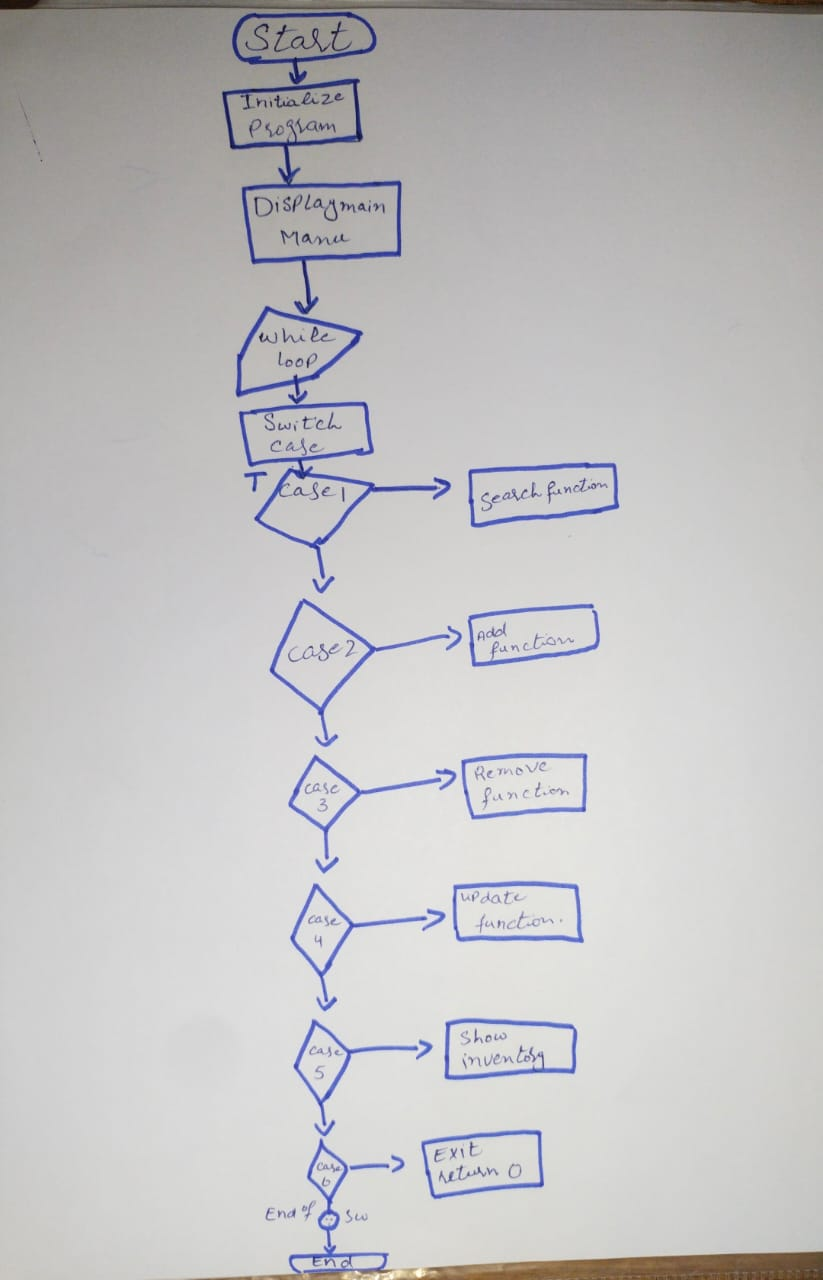 Start
Initialize
Program
Display main
Manu
while
loop
Switch
case
T
case 1
Search function
case 2
Add
function
case
3
Remove
function
case
4
update
function.
case
5
Show
inventory
case
6
Exit
return 0
End of SW
End